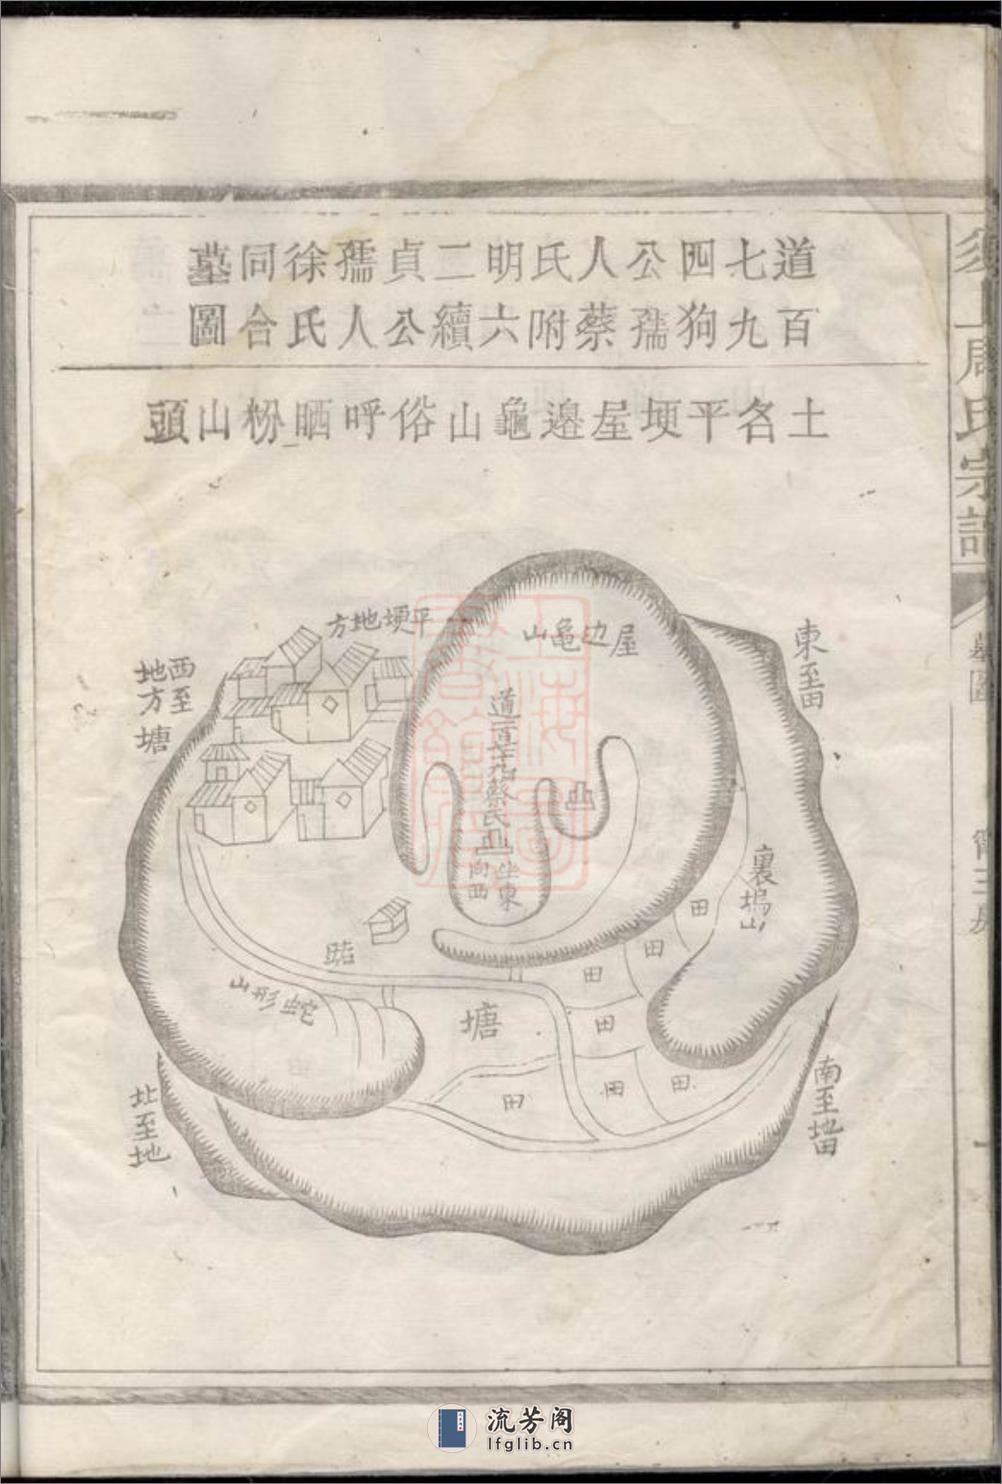 道百七九四狗公孺人蔡氏附明六二續貞公孺人徐氏同合墓圖
土名平埂屋邊龜山俗呼晒粉山頭
平埂地方
屋边龜山
東至田
西至地方塘
蔡氏
坐東向西
裏塢山
田
田
田
田
田
田
田
路
塘
蛇形山
南至地田
北至地
周氏宗譜
墓圖
流芳阁
lfglib.cn